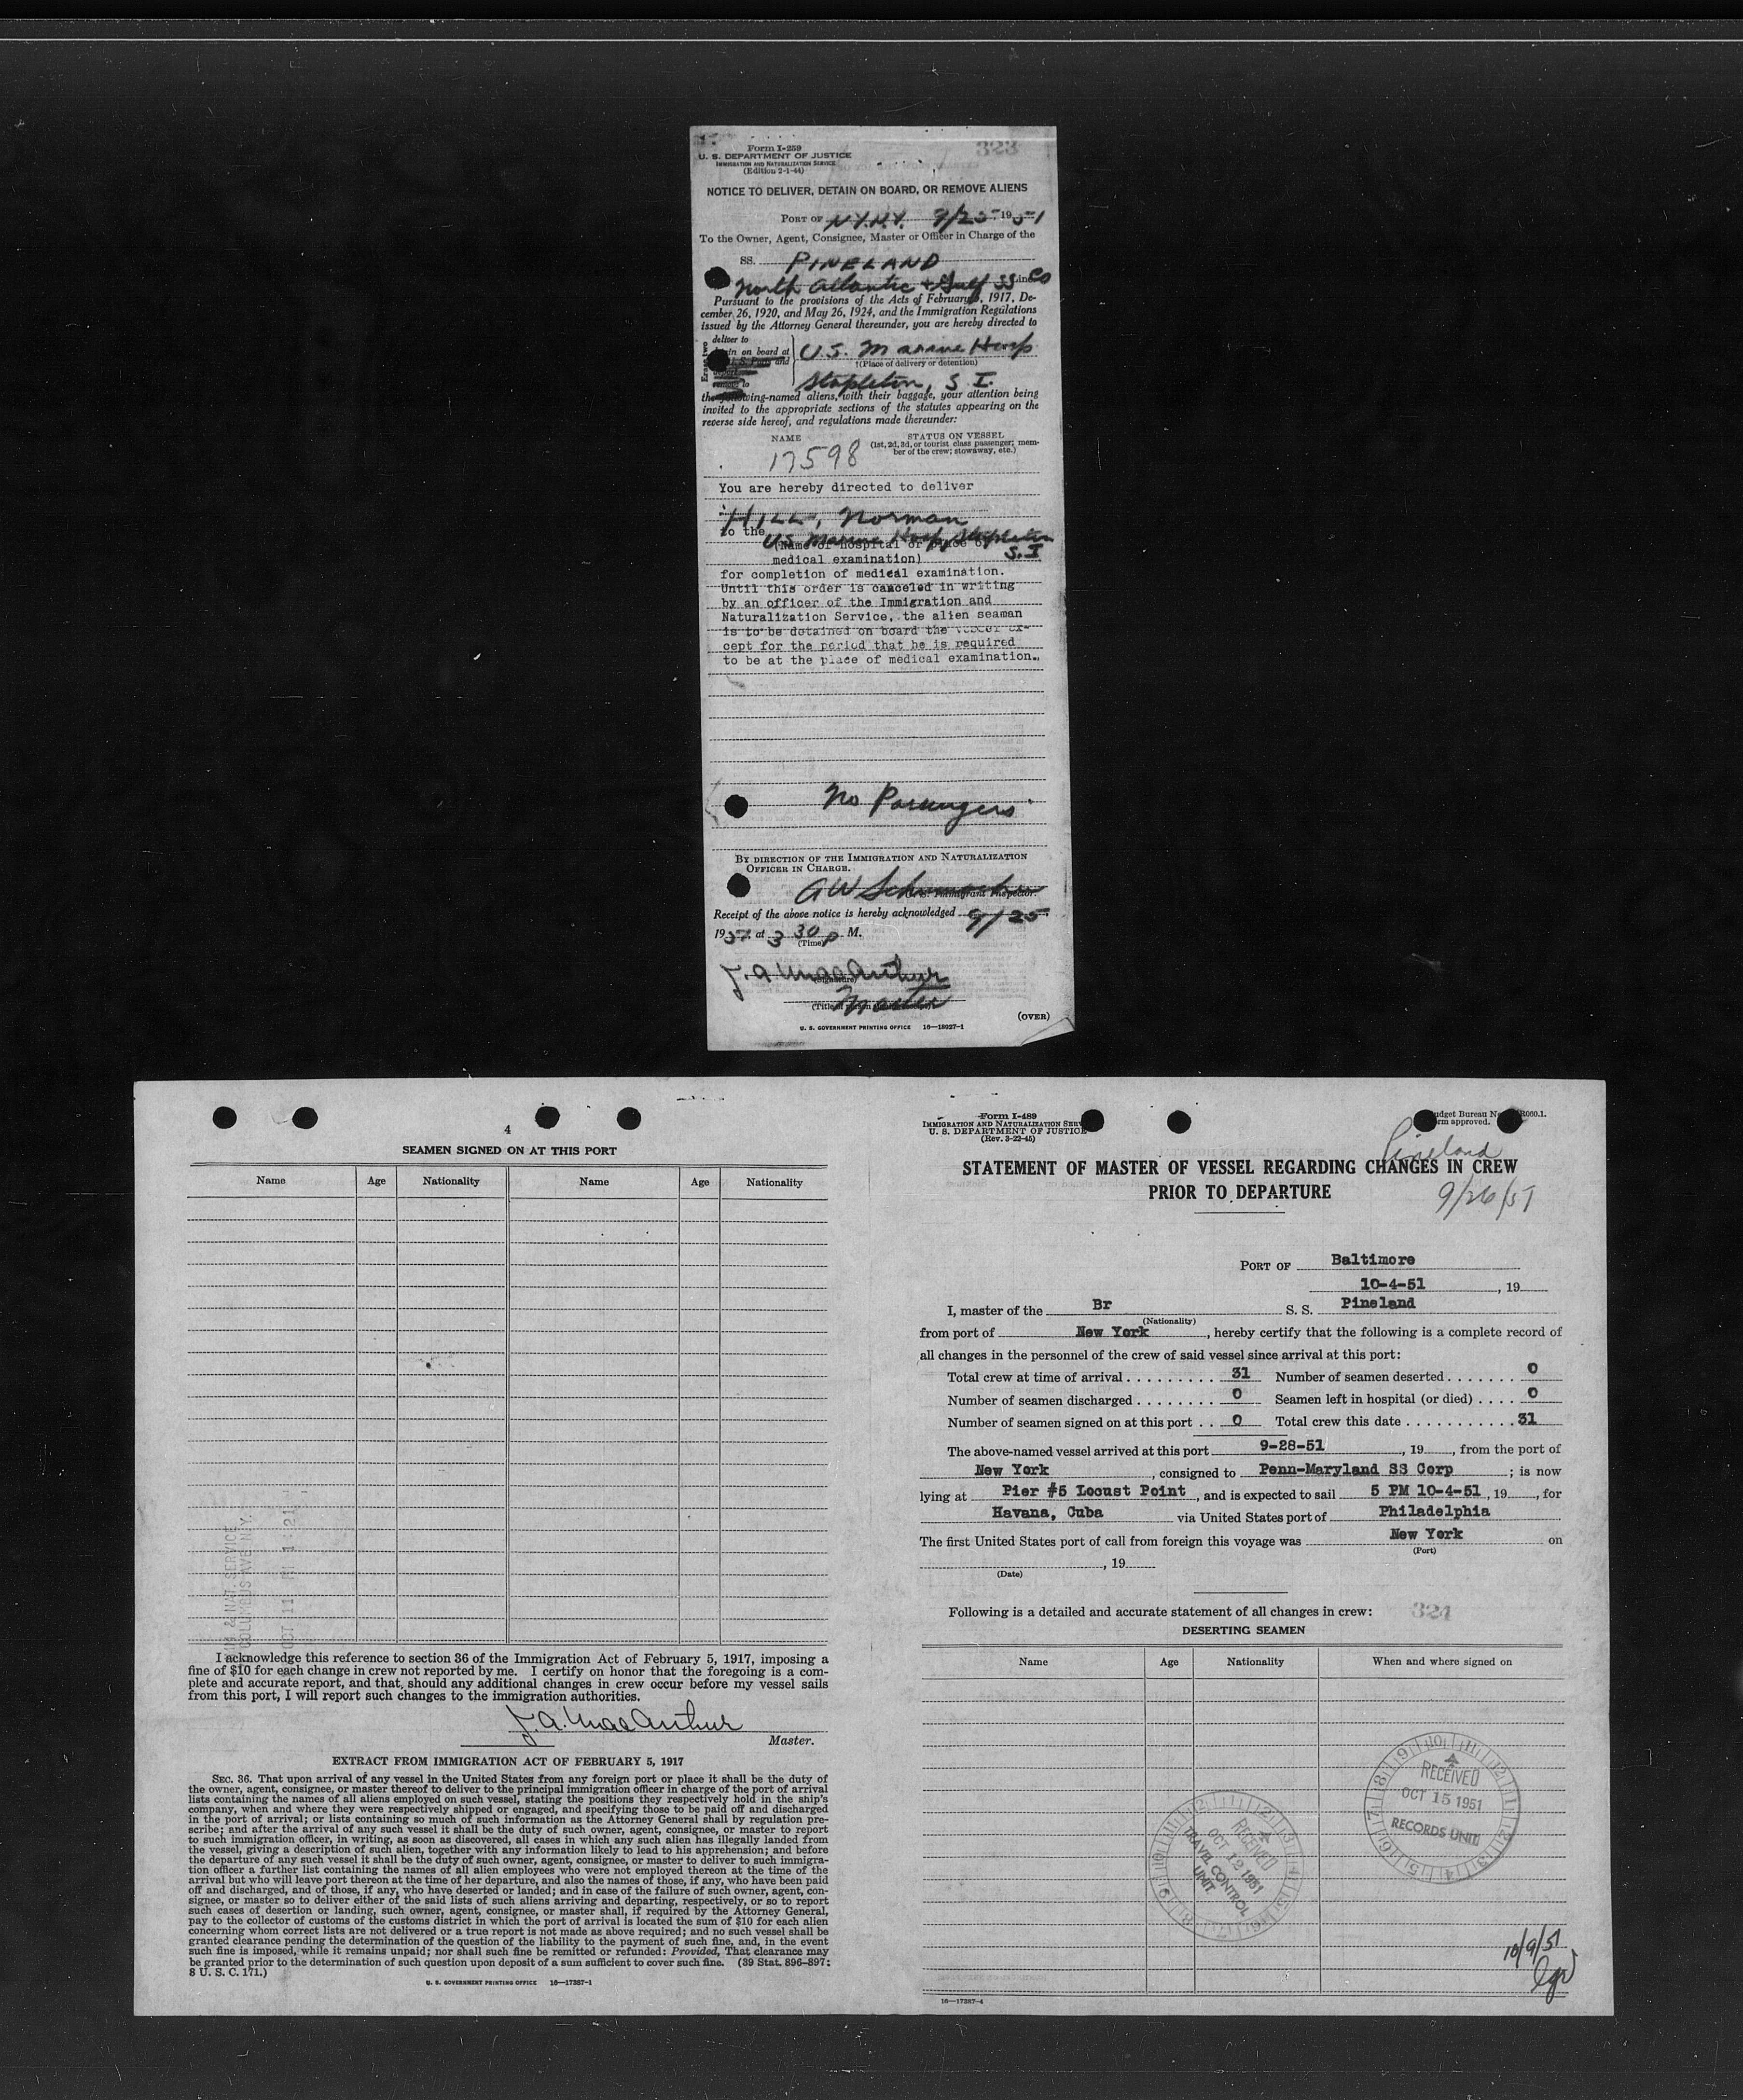 Form I-259
U. S. DEPARTMENT OF JUSTICE
IMMIGRATION AND NATURALIZATION SERVICE
(Edition 2-1-44)
323
NOTICE TO DELIVER, DETAIN ON BOARD, OR REMOVE ALIENS
PORT OF N.Y.N.Y. 9/25 1951
To the Owner, Agent, Consignee, Master or Officer in Charge of the
SS. PINELAND
North Atlantic & Gulf SS Co
Pursuant to the provisions of the Acts of February 5, 1917, De-
cember 26, 1920, and May 26, 1924, and the Immigration Regulations
issued by the Attorney General thereunder, you are hereby directed to
deliver to
on board at
U.S. Marine Hosp
†(Place of delivery or detention)
Stapleton, S. I.
the following-named aliens, with their baggage, your attention being
invited to the appropriate sections of the statutes appearing on the
reverse side hereof, and regulations made thereunder:
NAME STATUS ON VESSEL
(1st, 2d, 3d, or tourist class passenger; mem-
ber of the crew; stowaway, etc.)
17598
You are hereby directed to deliver
HILL, Norman
to the U.S. Marine Hosp, Stapleton
S.I
(Name of hospital or place of
medical examination)
for completion of medical examination.
Until this order is canceled in writing
by an officer of the Immigration and
Naturalization Service, the alien seaman
is to be detained on board the vessel ex-
cept for the period that he is required
to be at the place of medical examination.
No Passengers
BY DIRECTION OF THE IMMIGRATION AND NATURALIZATION
OFFICER IN CHARGE.
Immigrant Inspector.
Receipt of the above notice is hereby acknowledged 9/25
1951 at 3 30 p M.
(Time)
J. A. MacArthur
(Signature)
Master
(OVER)
U. S. GOVERNMENT PRINTING OFFICE 16—18927-1
4
SEAMEN SIGNED ON AT THIS PORT
Name Age Nationality Name Age Nationality
NAT. SERVICE
COLUMBUS AVE. N.Y.
OCT 11
I acknowledge this reference to section 36 of the Immigration Act of February 5, 1917, imposing a
fine of $10 for each change in crew not reported by me. I certify on honor that the foregoing is a com-
plete and accurate report, and that, should any additional changes in crew occur before my vessel sails
from this port, I will report such changes to the immigration authorities.
J. A. MacArthur
Master.
EXTRACT FROM IMMIGRATION ACT OF FEBRUARY 5, 1917
SEC. 36. That upon arrival of any vessel in the United States from any foreign port or place it shall be the duty of
the owner, agent, consignee, or master thereof to deliver to the principal immigration officer in charge of the port of arrival
lists containing the names of all aliens employed on such vessel, stating the positions they respectively hold in the ship's
company, when and where they were respectively shipped or engaged, and specifying those to be paid off and discharged
in the port of arrival; or lists containing so much of such information as the Attorney General shall by regulation pre-
scribe; and after the arrival of any such vessel it shall be the duty of such owner, agent, consignee, or master to report
to such immigration officer, in writing, as soon as discovered, all cases in which any such alien has illegally landed from
the vessel, giving a description of such alien, together with any information likely to lead to his apprehension; and before
the departure of any such vessel it shall be the duty of such owner, agent, consignee, or master to deliver to such immigra-
tion officer a further list containing the names of all alien employees who were not employed thereon at the time of the
arrival but who will leave port thereon at the time of her departure, and also the names of those, if any, who have been paid
off and discharged, and of those, if any, who have deserted or landed; and in case of the failure of such owner, agent, con-
signee, or master so to deliver either of the said lists of such aliens arriving and departing, respectively, or so to report
such cases of desertion or landing, such owner, agent, consignee, or master shall, if required by the Attorney General,
pay to the collector of customs of the customs district in which the port of arrival is located the sum of $10 for each alien
concerning whom correct lists are not delivered or a true report is not made as above required; and no such vessel shall be
granted clearance pending the determination of the question of the liability to the payment of such fine, and, in the event
such fine is imposed, while it remains unpaid; nor shall such fine be remitted or refunded: Provided, That clearance may
be granted prior to the determination of such question upon deposit of a sum sufficient to cover such fine. (39 Stat. 896-897;
8 U. S. C. 171.)
U. S. GOVERNMENT PRINTING OFFICE 16—17387-1
Form I-489
IMMIGRATION AND NATURALIZATION SERV
U. S. DEPARTMENT OF JUSTICE
(Rev. 3-22-45)
Budget Bureau No. R060.1.
Form approved.
Pineland
STATEMENT OF MASTER OF VESSEL REGARDING CHANGES IN CREW
PRIOR TO DEPARTURE
9/26/51
PORT OF Baltimore
10-4-51, 19
I, master of the Br S. S. Pineland
(Nationality)
from port of New York, hereby certify that the following is a complete record of
all changes in the personnel of the crew of said vessel since arrival at this port:
Total crew at time of arrival 31 Number of seamen deserted 0
Number of seamen discharged 0 Seamen left in hospital (or died) 0
Number of seamen signed on at this port 0 Total crew this date 31
The above-named vessel arrived at this port 9-28-51, 19, from the port of
New York, consigned to Penn-Maryland SS Corp; is now
lying at Pier #5 Locust Point, and is expected to sail 5 PM 10-4-51, 19, for
Havana, Cuba via United States port of Philadelphia
The first United States port of call from foreign this voyage was New York on
(Port)
, 19
(Date)
Following is a detailed and accurate statement of all changes in crew: 324
DESERTING SEAMEN
Name Age Nationality When and where signed on
RECEIVED
OCT 15 1951
RECORDS UNIT
RECEIVED
OCT 12 1951
TRAVEL CONTROL
UNIT
10/9/51
16—17387-4